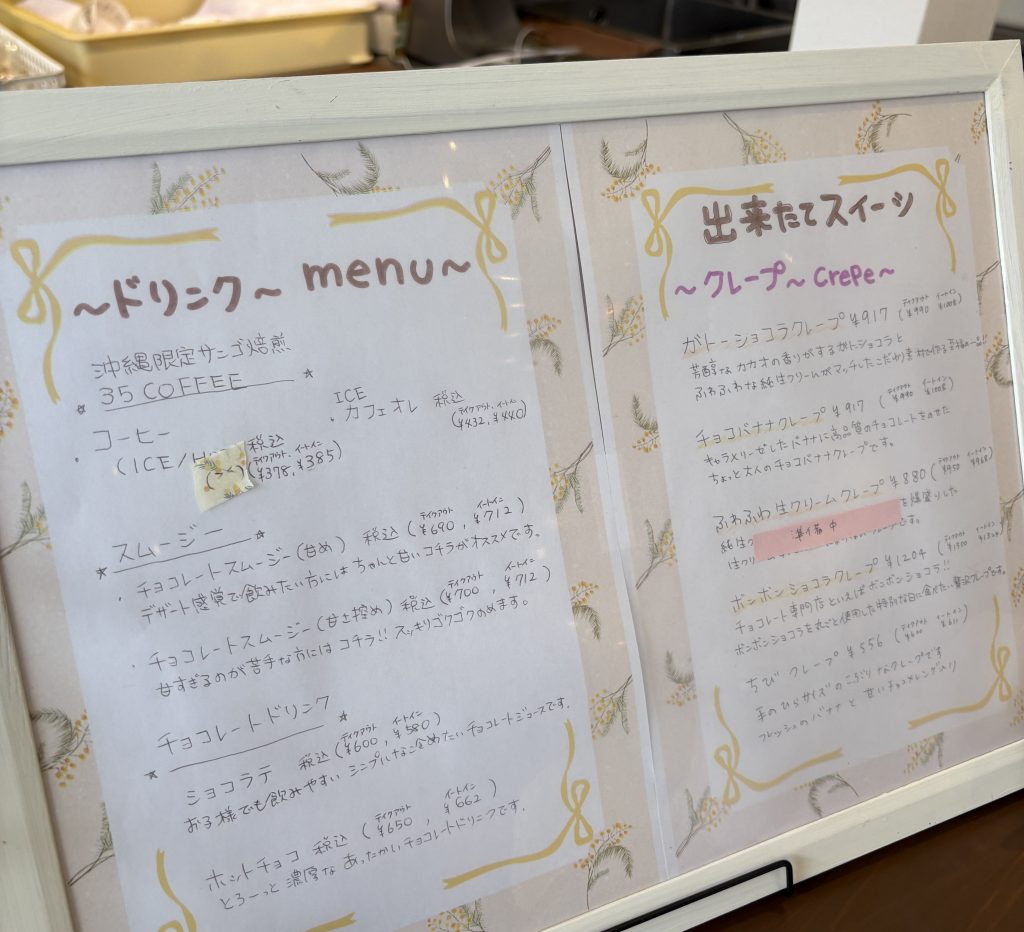 〜ドリンク〜 menu〜
沖縄限定サンゴ焙煎
35 COFFEE
・コーヒー 税込
(ICE/ テイクアウト、イートイン
(¥378, ¥385)
ICE
・カフェオレ 税込
テイクアウト、イートイン
(¥432, ¥440)
スムージー
・チョコレートスムージー(甘め) 税込 (テイクアウト ¥690, イートイン ¥712)
デザート感覚で飲みたい方にはちゃんと甘いコチラがオススメです。
・チョコレートスムージー(甘さ控め) 税込 (テイクアウト ¥700, イートイン ¥712)
甘すぎるのが苦手な方にはコチラ!! スッキリゴクゴクのめます。
チョコレートドリンク
ショコラテ 税込 (テイクアウト ¥600, イートイン ¥580)
お子様でも飲みやすい シンプルな つめたいチョコレートジュースです。
ホットチョコ 税込 (テイクアウト ¥650, イートイン ¥662)
とろーっと濃厚な あったかいチョコレートドリンクです.
出来たてスイーツ
〜クレープ〜 Crepe〜
ガトーショコラクレープ ¥917 (テイクアウト ¥990 イートイン ¥1008)
芳醇なカカオの香りがするガトショコラと
ふわふわな純生クリームがマッチしたこだわり素材で作る至福の一品!!
チョコバナナクレープ ¥917 (テイクアウト ¥990 イートイン ¥1008)
キャラメリーゼしたバナナに高品質のチョコレートをのせた
ちょっと大人のチョコバナナクレープです。
ふわふわ生クリームクレープ ¥880 (テイクアウト ¥950 イートイン ¥968)
純生 を爆盛りした
準備中
生クリ です。
ボンボンショコラクレープ ¥1204 (テイクアウト ¥1300 イートイン
チョコレート専門店といえばボンボンショコラ!!
ボンボンショコラを丸ごと使用した特別な日に食べたい贅沢クレープです。
ちび クレープ ¥556 (テイクアウト ¥600 イートイン ¥611)
手のひらサイズのこぶりなクレープです
フレッシュのバナナと 甘いチョコメレンゲ入り